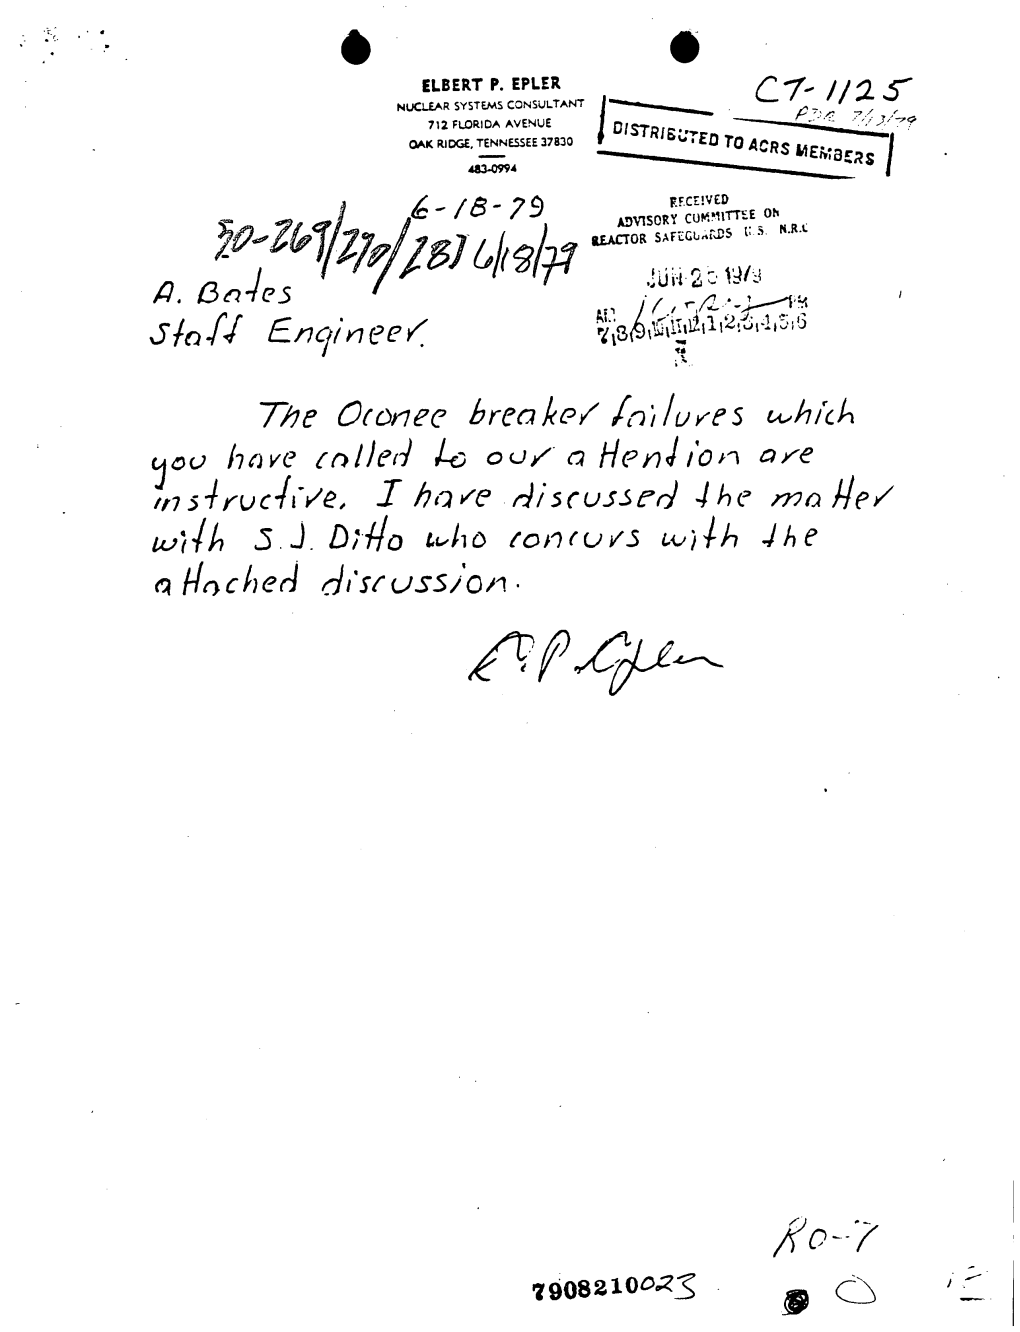 ELBERT P. EPLER
NUCLEAR SYSTEMS CONSULTANT
712 FLORIDA AVENUE
OAK RIDGE, TENNESSEE 37830
483-0994
CT-1125
PDR 7/13/79
DISTRIBUTED TO ACRS MEMBERS
6-18-79
50-269/270/287 6/18/79
RECEIVED
ADVISORY COMMITTEE ON
REACTOR SAFEGUARDS U.S. N.R.C
AM PM
7,8,9,10,11,12,1,2,3,4,5,6
A. Bates
Staff Engineer.
The Oconee breaker failures which
you have called to our attention are
instructive. I have discussed the matter
with S.J. Ditto who concurs with the
attached discussion.
E.P. Epler
RO-7
7908210023